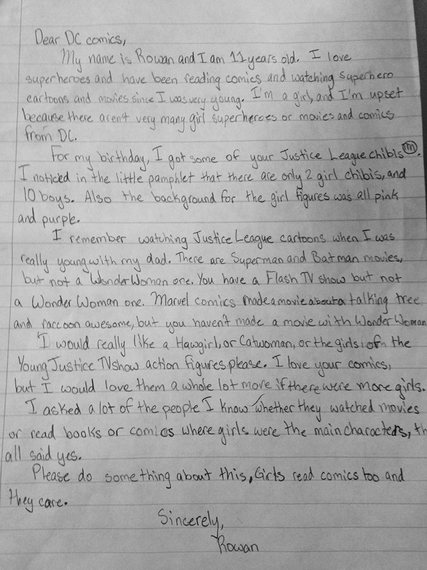 Dear DC comics,
My name is Rowan and I am 11 years old. I love
superheroes and have been reading comics and watching superhero
cartoons and movies since I was very young. I'm a girl, and I'm upset
because there aren't very many girl superheroes or movies and comics
from DC.
For my birthday, I got some of your Justice League chibis ™.
I noticked in the little pamphlet that there are only 2 girl chibis, and
10 boys. Also the background for the girl figures was all pink
and purple.
I remember watching Justice League cartoons when I was
really young with my dad. There are Superman and Batman movies,
but not a Wonder Woman one. You have a Flash TV show but not
a Wonder Woman one. Marvel comics made a movie about a talking tree
and raccoon awesome, but you haven't made a movie with Wonder Woman
I would really like a Hawgirl, or Catwoman, or the girls of the
Young Justice TV show action figures please. I love your comics,
but I would love them a whole lot more if there were more girls.
I acked a lot of the people I know whether they watched movies
or read books or comics where girls were the main characters, th
all said yes.
Please do something about this, Girls read comics too and
they care.
Sincerely,
Rowan